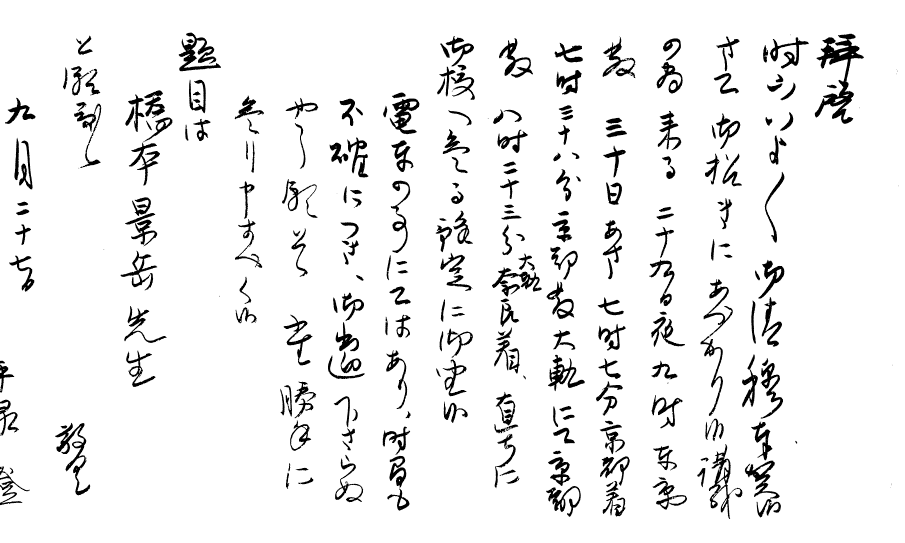 拝啓
時下いよ〳〵御清穆奉賀候
さて御招きにあづかり候講演
の為 来る 二十九日夜九時東京
発 三十日あさ七時七分京都着
七時三十八分京都発大軌にて京都
発 八時二十三分大軌奈良着、直ちに
御校へ参る予定に御座候
電車の事にてはあり、時間も
不確につき、御出迎下さらぬ
やう願上候 勝手に
参り申すべく候
題目は
橋本景岳先生
と願上候
敬具
九月二十七日
平泉澄